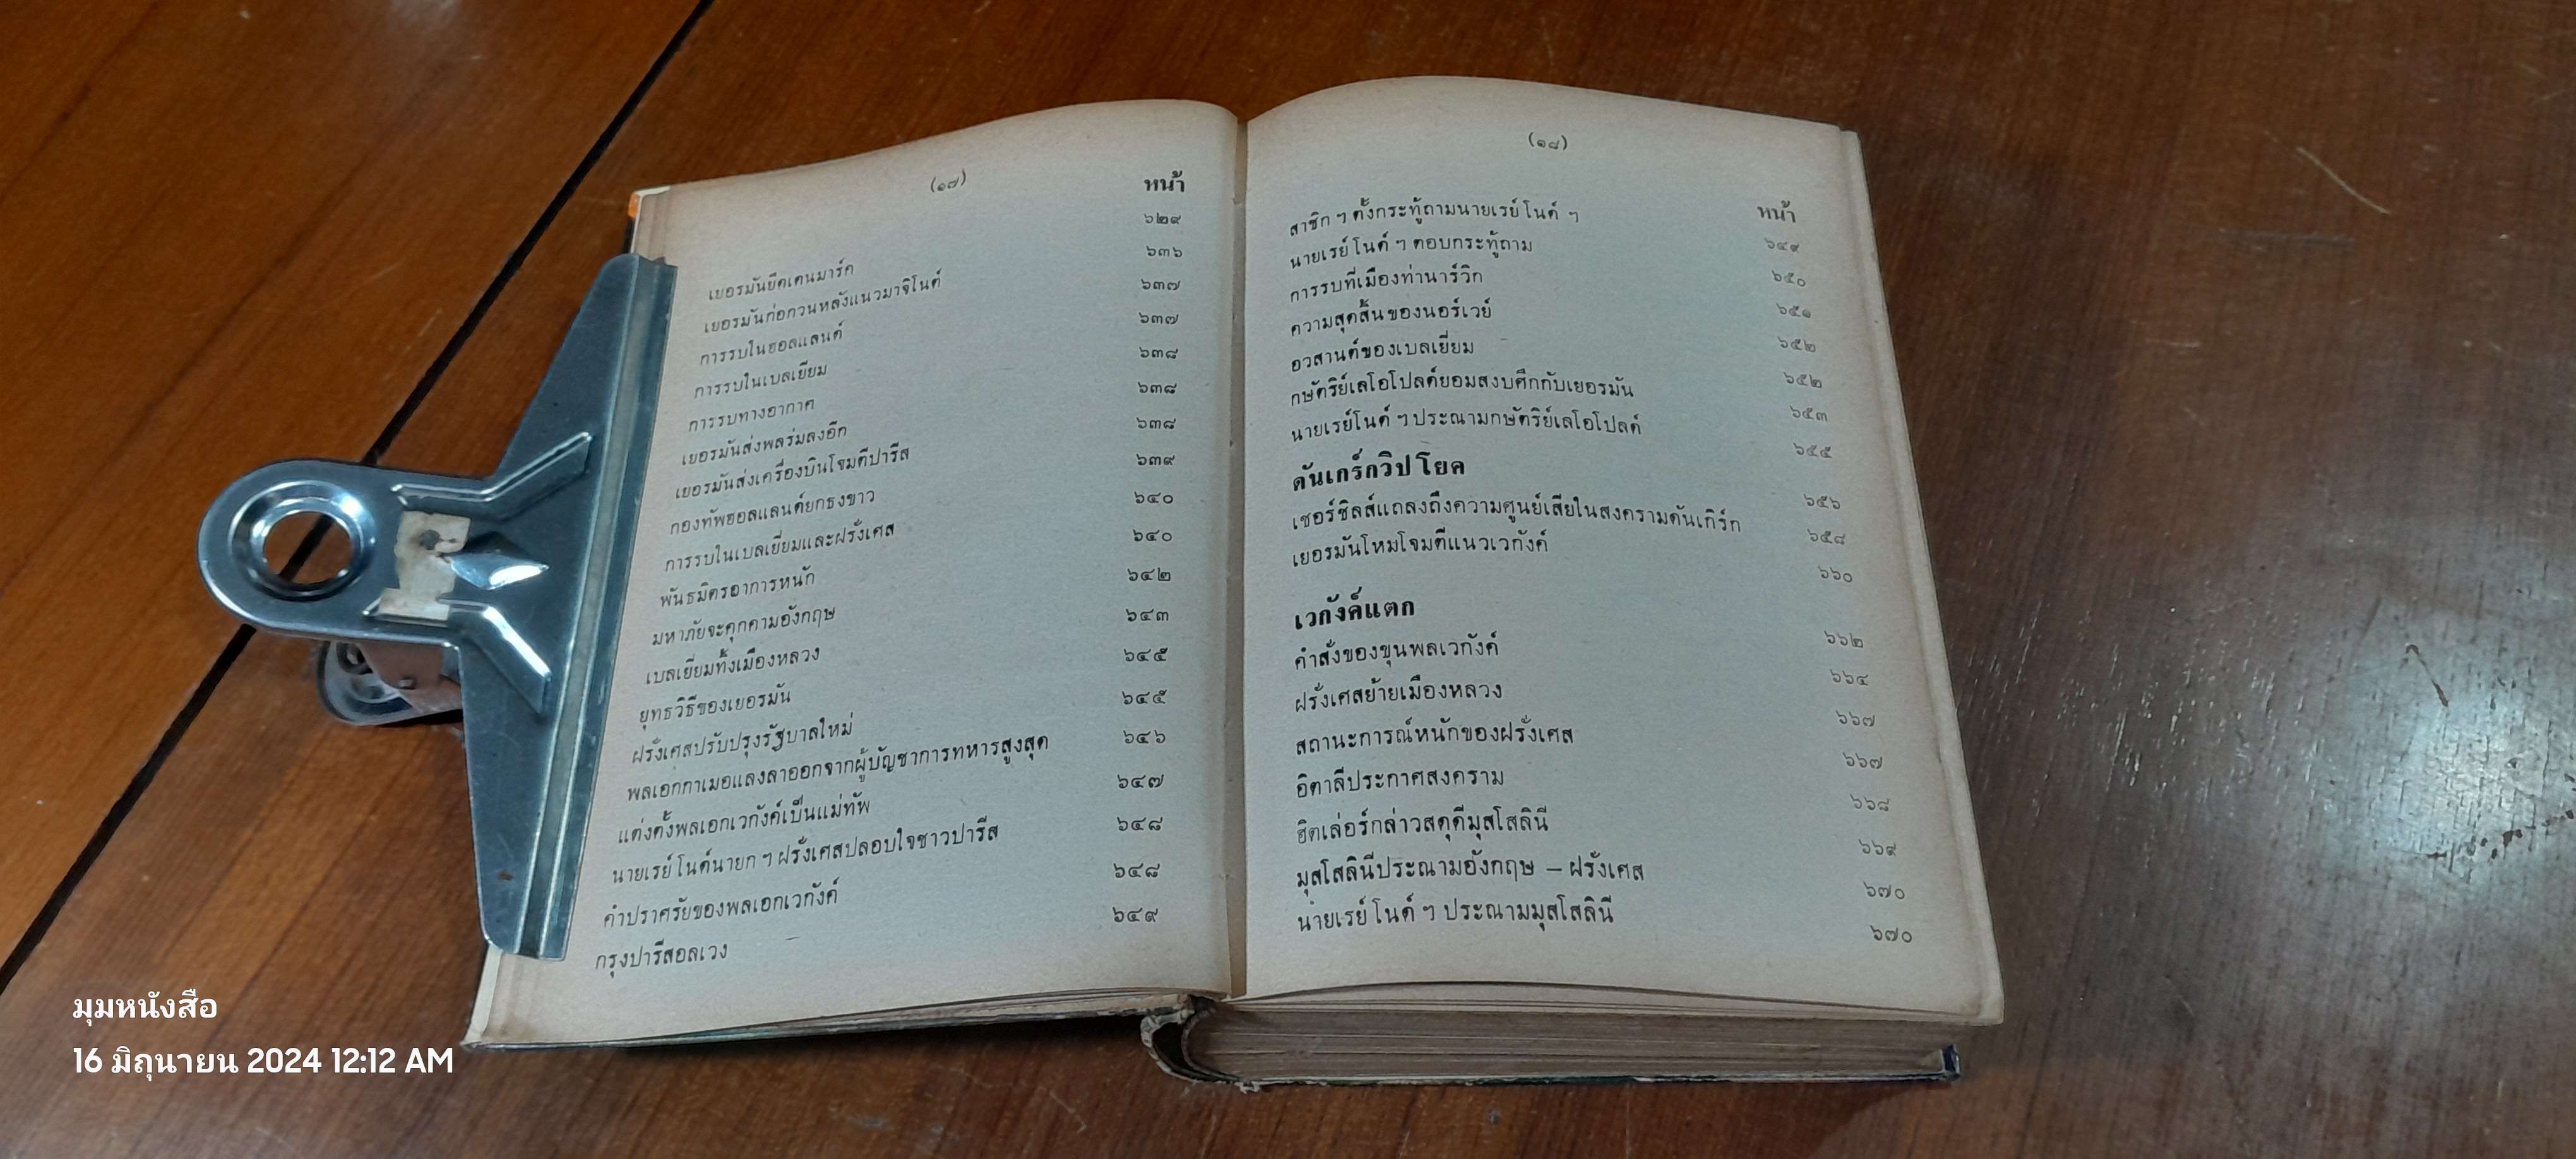 (๑๗)
หน้า
เยอรมันยึดเดนมาร์ค ๖๒๙
เยอรมันก่อกวนหลังแนวมาจิโนต์ ๖๓๖
การรบในฮอลแลนด์ ๖๓๗
การรบในเบลเยี่ยม ๖๓๗
การรบทางอากาศ ๖๓๘
เยอรมันส่งพลร่มลงอีก ๖๓๘
เยอรมันส่งเครื่องบินโจมตีปารีส ๖๓๘
กองทัพฮอลแลนด์ยกธงขาว ๖๓๙
การรบในเบลเยี่ยมและฝรั่งเศส ๖๔๐
พันธมิตรอาการหนัก ๖๔๐
มหาภัยจะคุกคามอังกฤษ ๖๔๒
เบลเยี่ยมทิ้งเมืองหลวง ๖๔๓
ยุทธวิธีของเยอรมัน ๖๔๕
ฝรั่งเศสปรับปรุงรัฐบาลใหม่ ๖๔๕
พลเอกกาเมอแลงลาออกจากผู้บัญชาการทหารสูงสุด ๖๔๖
แต่งตั้งพลเอกเวกังค์เป็นแม่ทัพ ๖๔๗
นายเรย์โนด์นายก ฯ ฝรั่งเศสปลอบใจชาวปารีส ๖๔๘
คำปราศรัยของพลเอกเวกังค์ ๖๔๘
กรุงปารีสอลเวง ๖๔๙
(๑๘)
หน้า
สาชิก ฯ ตั้งกระทู้ถามนายเรย์โนด์ ฯ ๖๔๙
นายเรย์โนด์ ฯ ตอบกระทู้ถาม ๖๕๐
การรบที่เมืองท่านาร์วิก ๖๕๑
ความสุดสิ้นของนอร์เวย์ ๖๕๒
อวสานต์ของเบลเยี่ยม ๖๕๒
กษัตริย์เลโอโปลด์ยอมสงบศึกกับเยอรมัน ๖๕๓
นายเรย์โนด์ ฯ ประณามกษัตริย์เลโอโปลด์ ๖๕๕
ดันเกร์กวิปโยค ๖๕๖
เชอร์ชิลส์แถลงถึงความศูนย์เสียในสงครามดันเกิร์ก ๖๕๘
เยอรมันโหมโจมตีแนวเวกังค์ ๖๖๐
เวกังค์แตก ๖๖๒
คำสั่งของขุนพลเวกังค์ ๖๖๔
ฝรั่งเศสย้ายเมืองหลวง ๖๖๗
สถานะการณ์หนักของฝรั่งเศส ๖๖๗
อิตาลีประกาศสงคราม ๖๖๘
ฮิตเล่อร์กล่าวสดุดีมุสโสลินี ๖๖๙
มุสโสลินีประณามอังกฤษ – ฝรั่งเศส ๖๗๐
นายเรย์โนด์ ฯ ประณามมุสโสลินี ๖๗๐
มุมหนังสือ
16 มิถุนายน 2024 12:12 AM